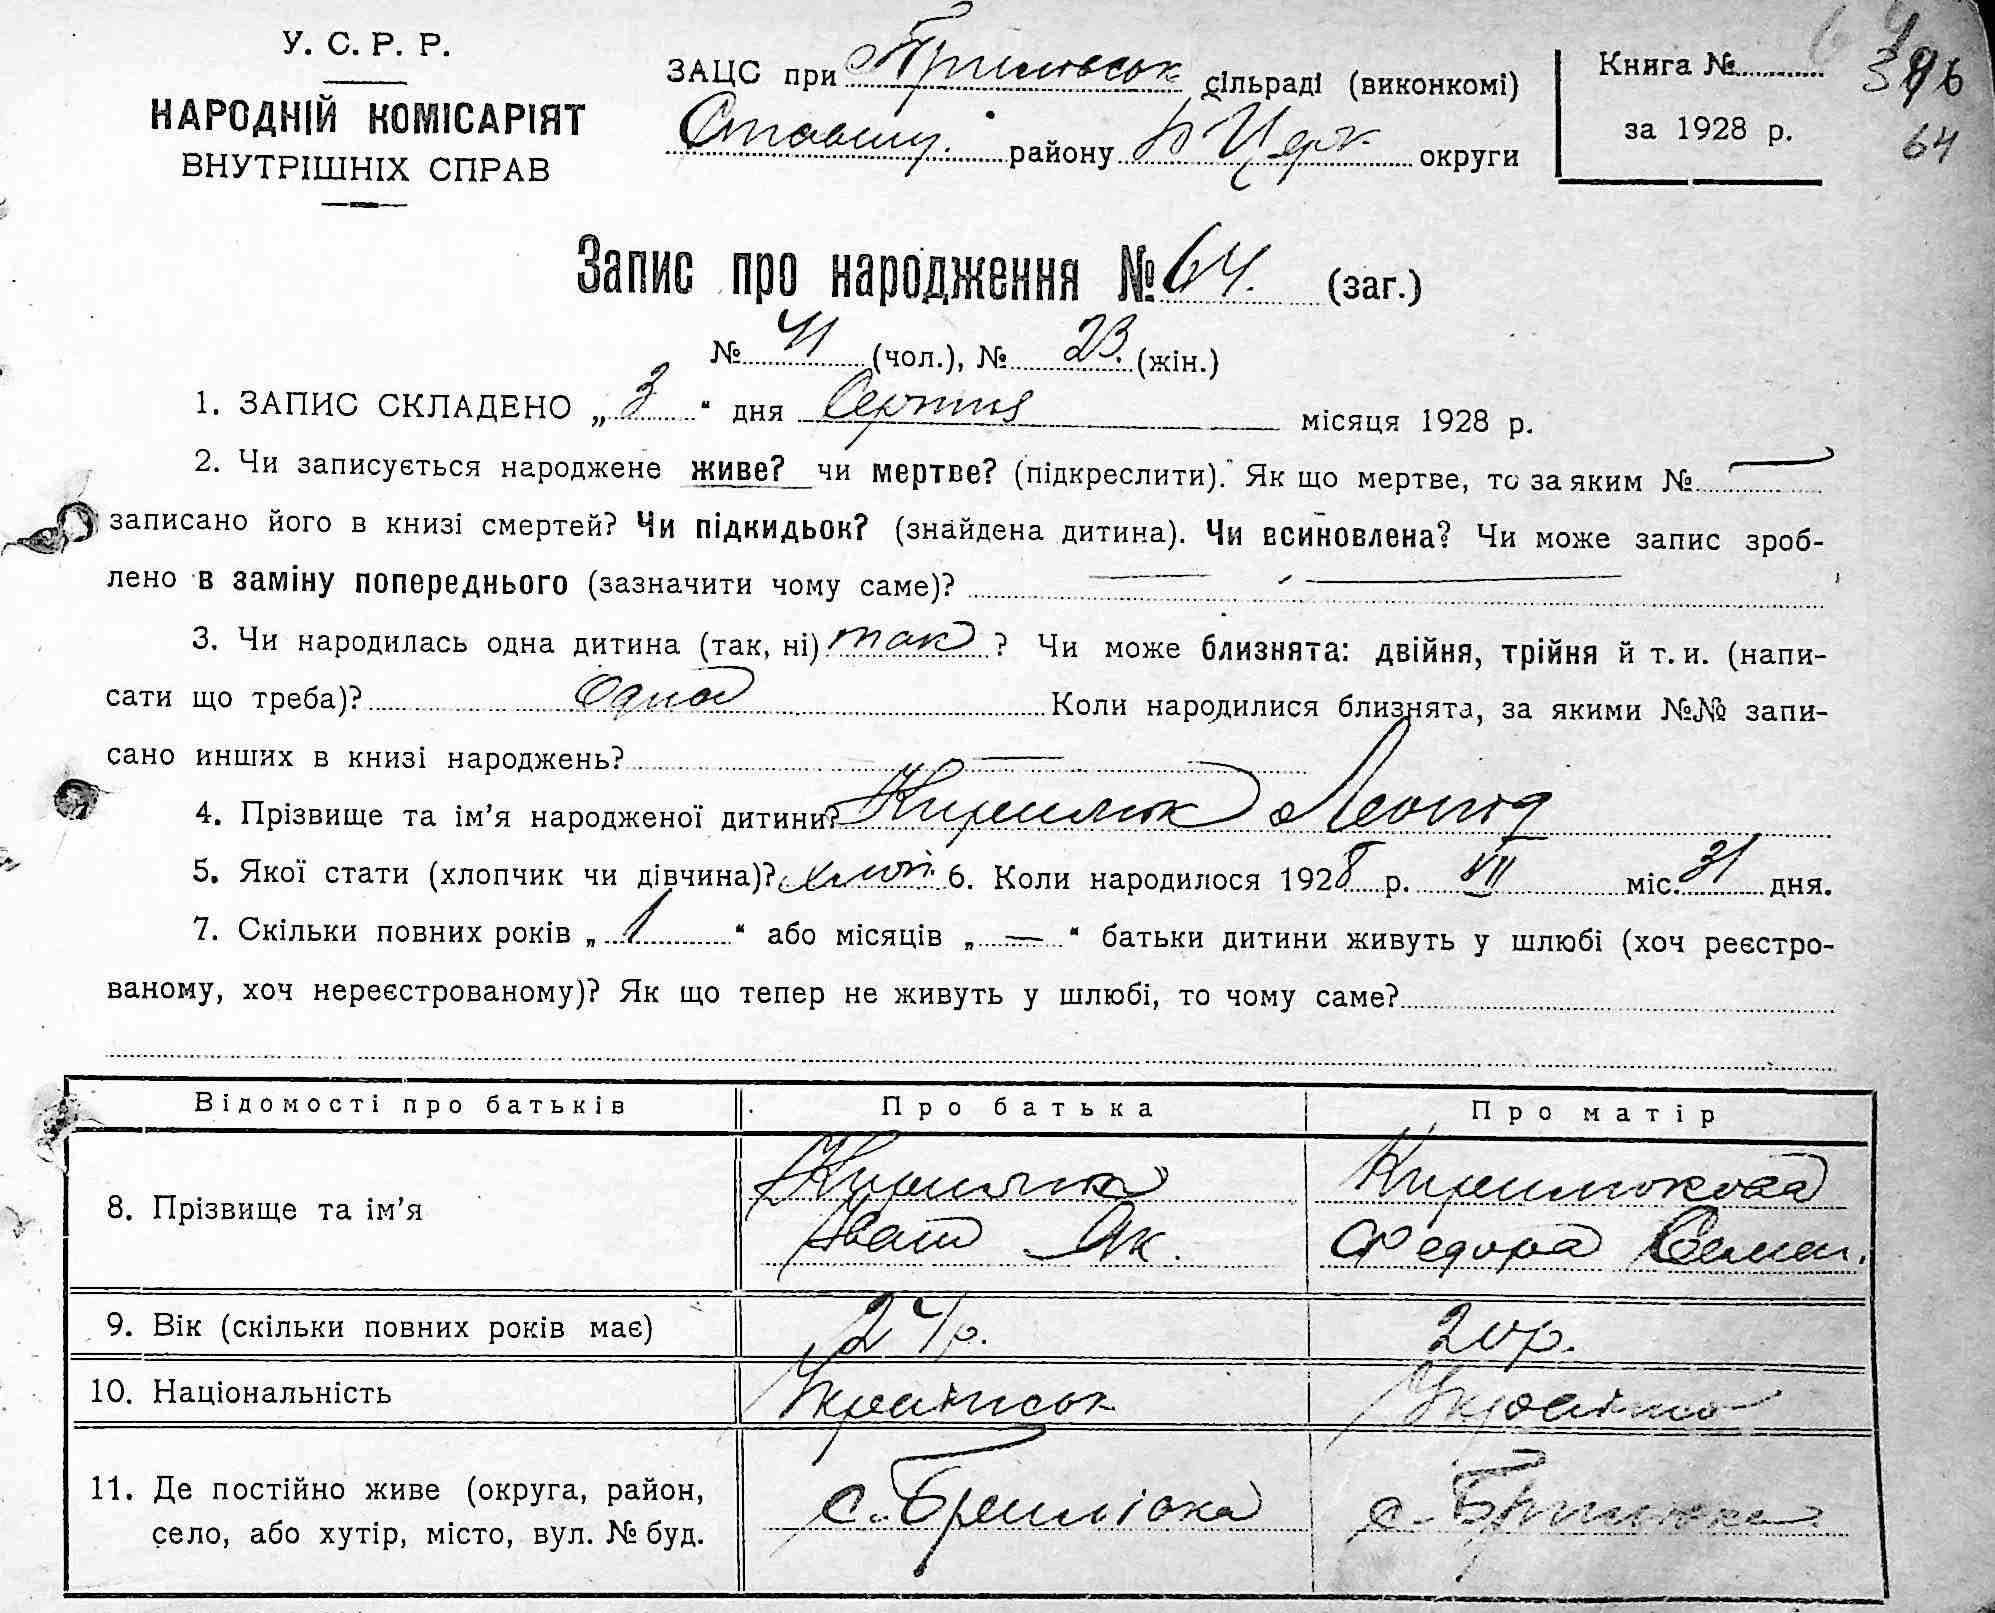 У. С. Р. Р.
НАРОДНІЙ КОМІСАРІЯТ
ВНУТРІШНІХ СПРАВ
ЗАЦС при сільраді (виконкомі)
району Б Церк округи
Книга №
за 1928 р.
64
Запис про народження № 64. (заг.)
№ 41 (чол.), № 23. (жін.)
1. ЗАПИС СКЛАДЕНО „ 3 “ дня Серпня місяця 1928 р.
2. Чи записується народжене живе? чи мертве? (підкреслити). Як що мертве, то за яким №
записано його в книзі смертей? Чи підкидьок? (знайдена дитина). Чи всиновлена? Чи може запис зроб-
лено в заміну попереднього (зазначити чому саме)?
3. Чи народилась одна дитина (так, ні) так ? Чи може близнята: двійня, трійня й т. и. (напи-
сати що треба)? Одна Коли народилися близнята, за якими №№ запи-
сано инших в книзі народжень?
4. Прізвище та ім’я народженої дитини? Кирилюк Леонід
5. Якої стати (хлопчик чи дівчина)? хлоп. 6. Коли народилося 1928 р. VII міс. 31 дня.
7. Скільки повних років „ 1 “ або місяців „ — “ батьки дитини живуть у шлюбі (хоч реєстро-
ваному, хоч нереєстрованому)? Як що тепер не живуть у шлюбі, то чому саме?
Відомості про батьків Про батька Про матір
8. Прізвище та ім’я Кирилюк Іван Як. Кирилюкова Федора Семен.
9. Вік (скільки повних років має) 24 р. 20 р.
10. Національність Українськ Українка
11. Де постійно живе (округа, район,
село, або хутір, місто, вул. № буд. с. Брилівка с. Брилівка